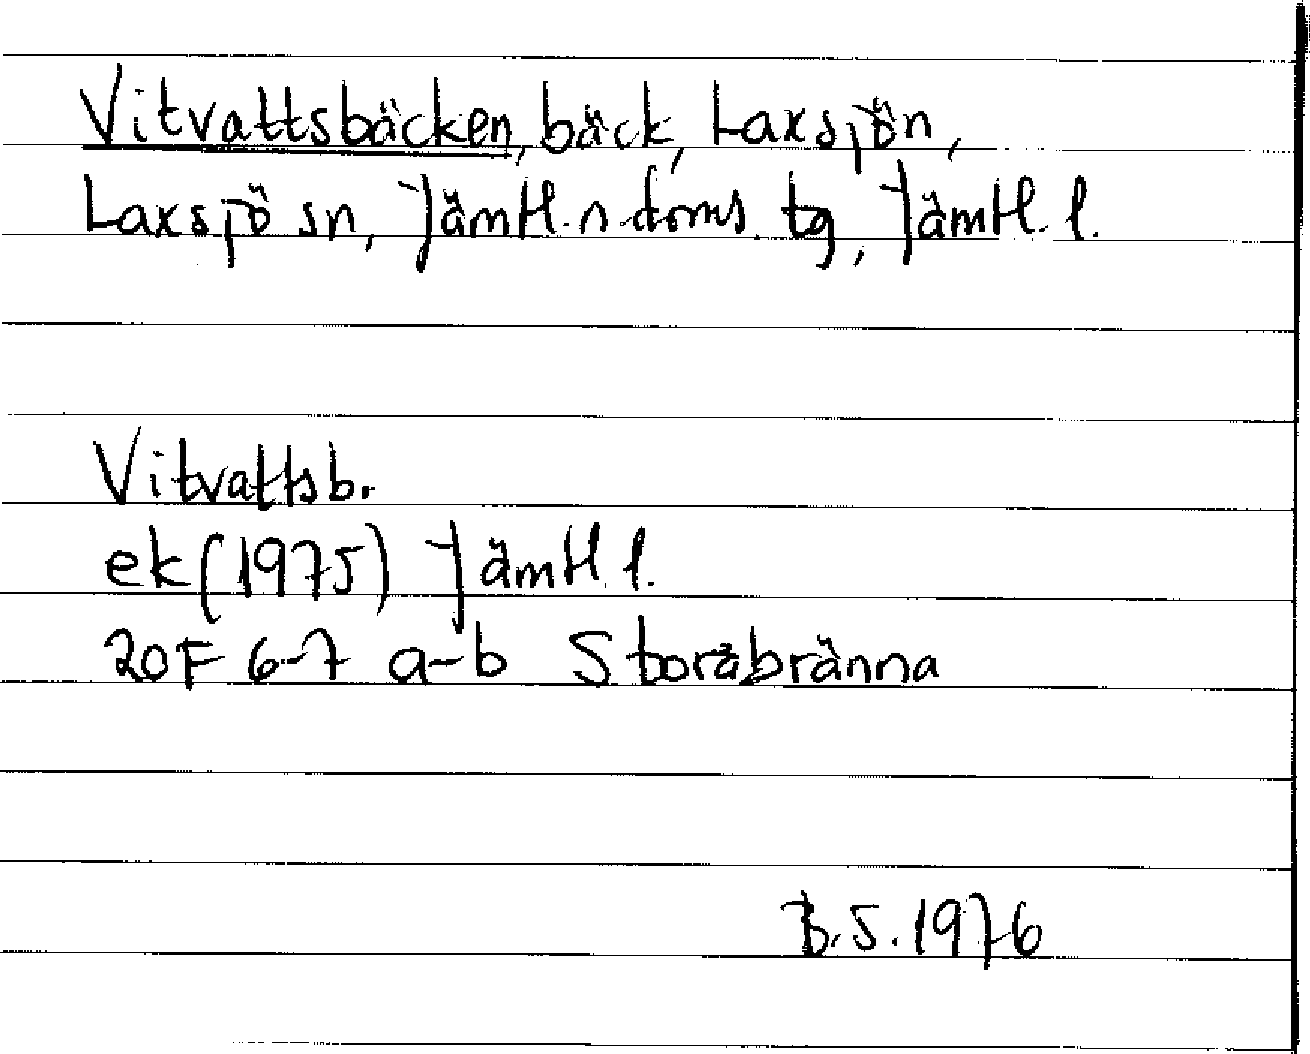 Vitvattsbäcken, bäck, Laxsjön,
Laxsjö sn, Jämtl. n. doms. tg, Jämtl. l.
Vitvattsb.
ek (1975) Jämtl. l.
20F 6-7 a-b Storåbränna
B.S. 1976